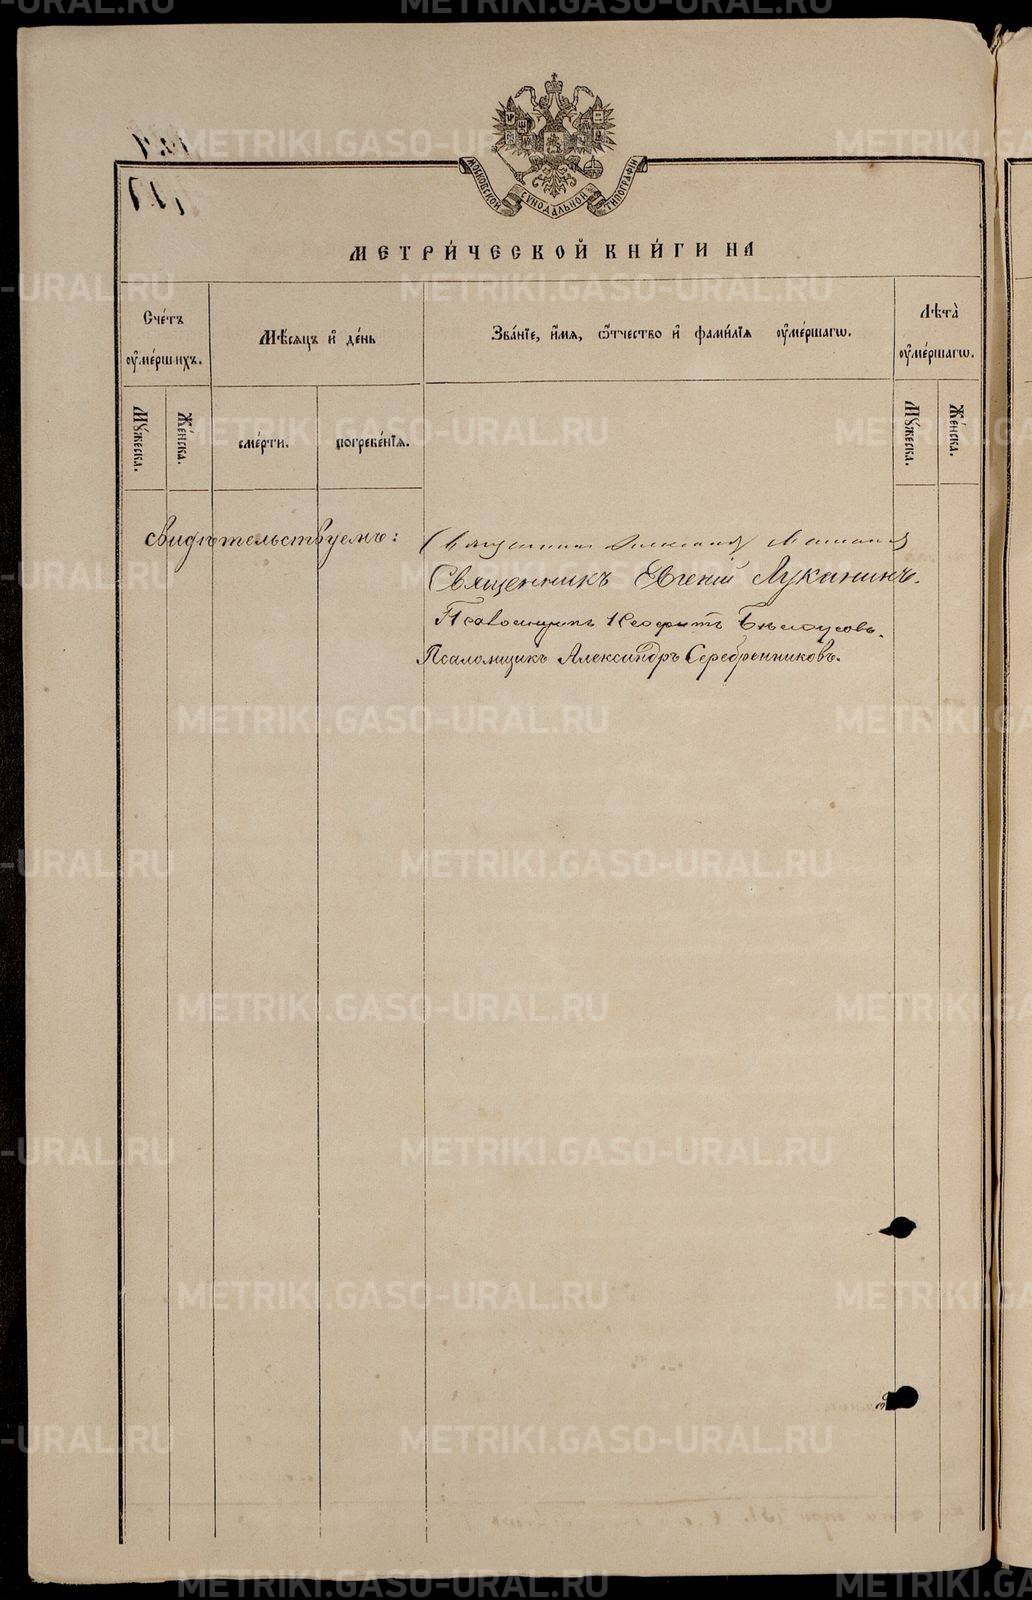 МОСКОВСКОЙ СУНОДАЛЬНОЙ ТИПОГРАФІИ
МЕТРИ́ЧЕСКОЙ КНИ́ГИ НА
Сче́тъ ᲂу҆ме́ршихъ.
Мѣ́сяцъ и҆ де́нь
Зва́нїе, и҆́мя, ѻ҆́тчество и҆ фами́лїя ᲂу҆ме́ршагѡ.
Лѣта̀ ᲂу҆ме́ршагѡ.
Мꙋ́жеска.
Же́нска.
сме́рти.
погребе́нїѧ.
Мꙋ́жеска.
Же́нска.
свидѣтельствуемъ:
Священник Александр
Священникъ Евгеній Луканинъ.
Псаломщикъ Неофитъ Бѣлоусовъ.
Псаломщикъ Александръ Серебренниковъ.
METRIKI.GASO-URAL.RU